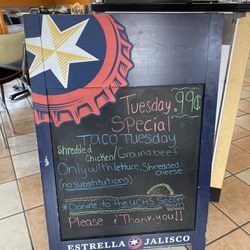 Tuesday .99¢
Special
Taco Tuesday
Shredded
Chicken/Ground beef
Only with lettuce, Shredded
cheese
(no substitutions)
*Donate to the UCHS Soccer
Team
Please & Thank you!!
ESTRELLA JALISCO